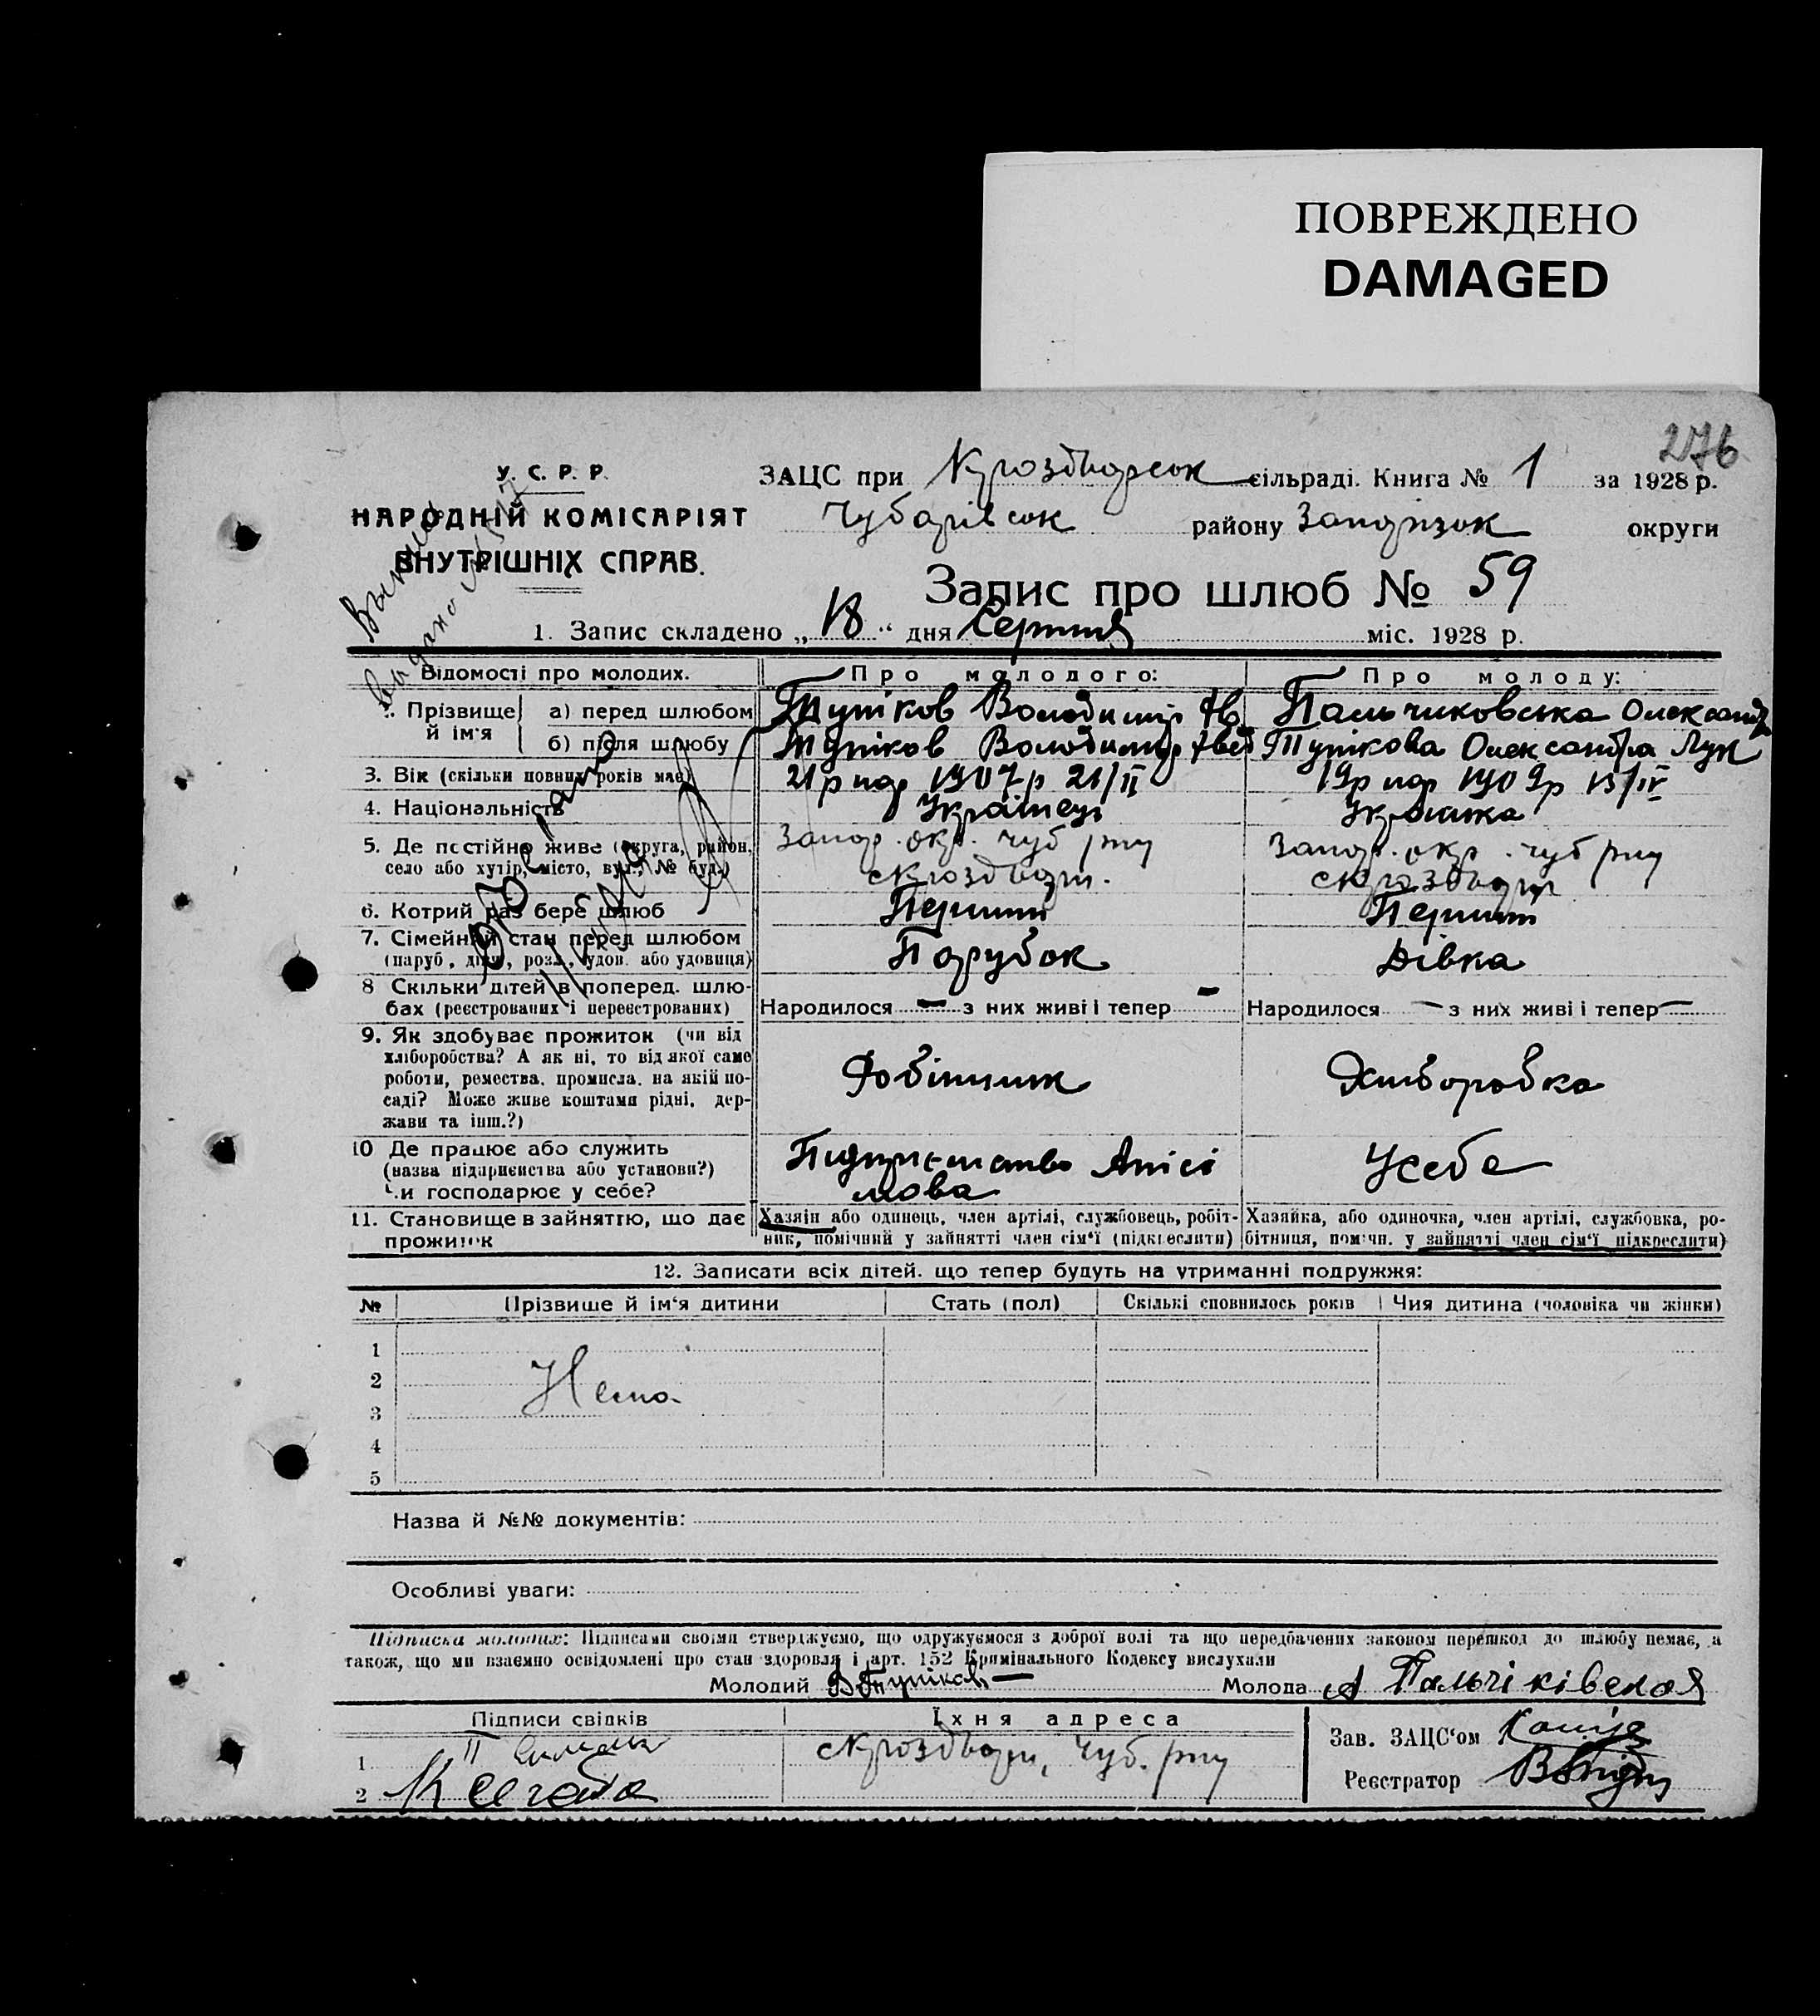 ПОВРЕЖДЕНО
DAMAGED
276
У. С. Р. Р.
НАРОДНІЙ КОМІСАРІЯТ
ВНУТРІШНІХ СПРАВ.
ЗАЦС при сільраді. Книга № 1 за 1928 р.
Чубарівськ району Запорізьк округи
Запис про шлюб № 59
1. Запис складено „18“ дня Серпня міс. 1928 р.
Відомості про молодих. Про молодого: Про молоду:
Прізвище й ім'я
а) перед шлюбом Тупіков Володимир Ав Пальчиковська Олександр
б) після шлюбу Тупіков Володимир Авед Тупікова Олександра Лук
3. Вік (скільки повних років має) 21 р нар 1907 р 21/II 19 р нар 1909 р 13/IV
4. Національність Українець Українка
5. Де постійно живе (округа, район, село або хутір, місто, вул., № буд.) Запор. окр. Чуб рну Запор. окр. Чуб рну
6. Котрий раз бере шлюб Перший Перший
7. Сімейний стан перед шлюбом Парубок Дівка
(паруб., дівч., розл., удов. або удовиця)
8 Скільки дітей в поперед. шлю-
бах (реєстрованих і нереєстрованих) Народилося — з них живі і тепер — Народилося — з них живі і тепер —
9. Як здобуває прожиток (чи від
хліборобства? А як ні, то від якої саме
роботи, ремества, промисла, на якій по-
саді? Може живе коштами рідні, дер-
жави та інш.?)
Робітник Хліборобка
10 Де працює або служить
(назва підприємства або установи?)
Чи господарює у себе?
Підприємство Анісі
мова
Усебе
11. Становище в зайняттю, що дає
прожиток
Хазяїн або одинець, член артілі, службовець, робіт-
ник, помічний у зайнятті член сім'ї (підкреслити)
Хазяйка, або одиночка, член артілі, службовка, ро-
бітниця, помічн. у зайнятті член сім'ї підкреслити)
12. Записати всіх дітей, що тепер будуть на утриманні подружжя:
№ Прізвище й ім'я дитини Стать (пол) Скількі сповнилось років Чия дитина (чоловіка чи жінки)
1
2 Нема
3
4
5
Назва й №№ документів:
Особливі уваги:
Підписка молодих: Підписами своїми стверджуємо, що одружуємося з доброї волі та що передбачених законом перешкод до шлюбу немає, а
також, що ми взаємно освідомлені про стан здоровля і арт. 152 Крімінального Кодексу вислухали
Молодий В Тупіков Молода А Пальчіківская
Підписи свідків Їхня адреса
Зав. ЗАЦС'ом
1
Реєстратор
2